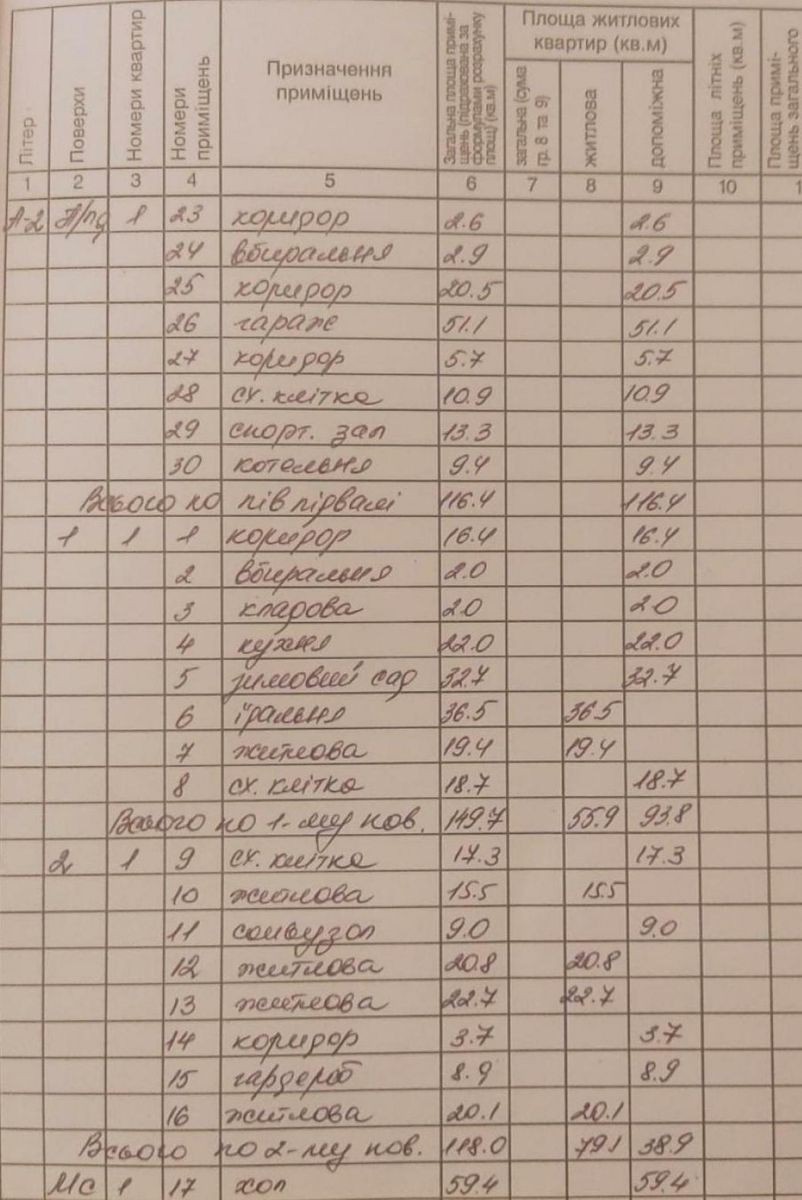 Літер
Поверхи
Номери квартир
Номери приміщень
Призначення приміщень
Загальна площа приміщень (підрахована за формулами розрахунку площ) (кв.м)
Площа житлових квартир (кв.м)
загальна (сума гр. 8 та 9)
житлова
допоміжна
Площа літніх приміщень (кв.м)
Площа примі-
щень загального
1 2 3 4 5 6 7 8 9 10 1
А-2 П/пд 1 23 коридор 2.6 2.6
24 вбиральня 2.9 2.9
25 коридор 20.5 20.5
26 гараж 51.1 51.1
27 коридор 5.7 5.7
28 сх. клітка 10.9 10.9
29 спорт. зал 13.3 13.3
30 котельня 9.4 9.4
Всього по пів підвалі 116.4 116.4
1 1 1 коридор 16.4 16.4
2 вбиральня 2.0 2.0
3 кладова 2.0 2.0
4 кухня 22.0 22.0
5 зимовий сад 32.7 32.7
6 їдальня 36.5 36.5
7 житлова 19.4 19.4
8 сх. клітка 18.7 18.7
Всього по 1-му пов. 149.7 55.9 93.8
2 1 9 сх. клітка 17.3 17.3
10 житлова 15.5 15.5
11 санвузол 9.0 9.0
12 житлова 20.8 20.8
13 житлова 22.7 22.7
14 коридор 3.7 3.7
15 гардероб 8.9 8.9
16 житлова 20.1 20.1
Всього по 2-му пов. 118.0 79.1 38.9
Мс 1 17 хол 59.4 59.4